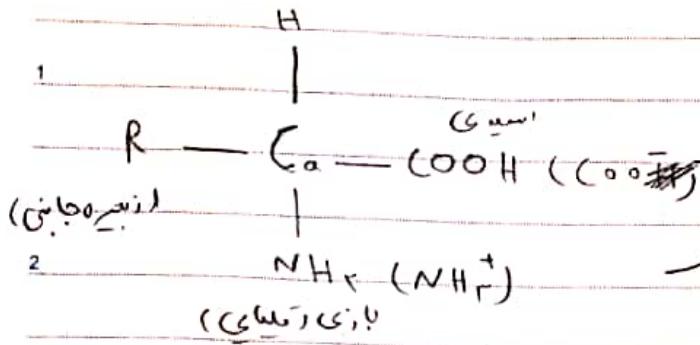 H
1
اسیدی
R — Cα — COOH (COO⁻)
(زنجیره جانبی)
2
NH۲ (NH۳⁺)
بازی (قلیایی)